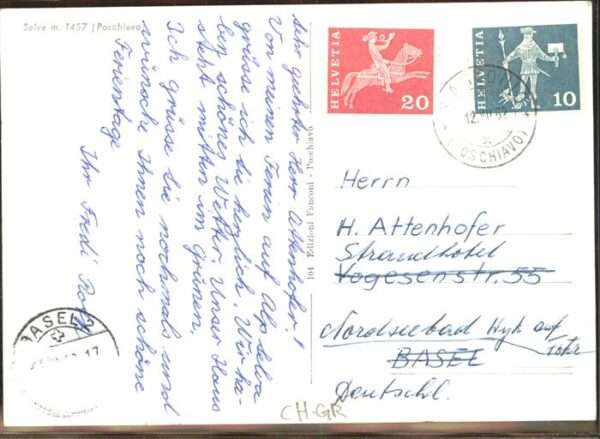 Selva m. 1457 (Poschiavo)
Sehr geehrter Herr Attenhofer!
Von meinen Ferien auf Alp Selva
grüsse ich Sie herzlich. Wir ha-
ben schönes Wetter. Unser Haus
steht mitten im grünen.
Ich grüsse Sie nochmals und
wünsche Ihnen noch schöne
Ferientage
Ihr Fredi
104 Edizioni Fanconi - Poschiavo
HELVETIA
20
HELVETIA
10
(POSCHIAVO)
BASEL 2
Herrn
H. Attenhofer
Strandhotel
Vogesenstr. 55
Nordseebad Wyk auf
Föhr
BASEL
Deutschl.
CH-GR